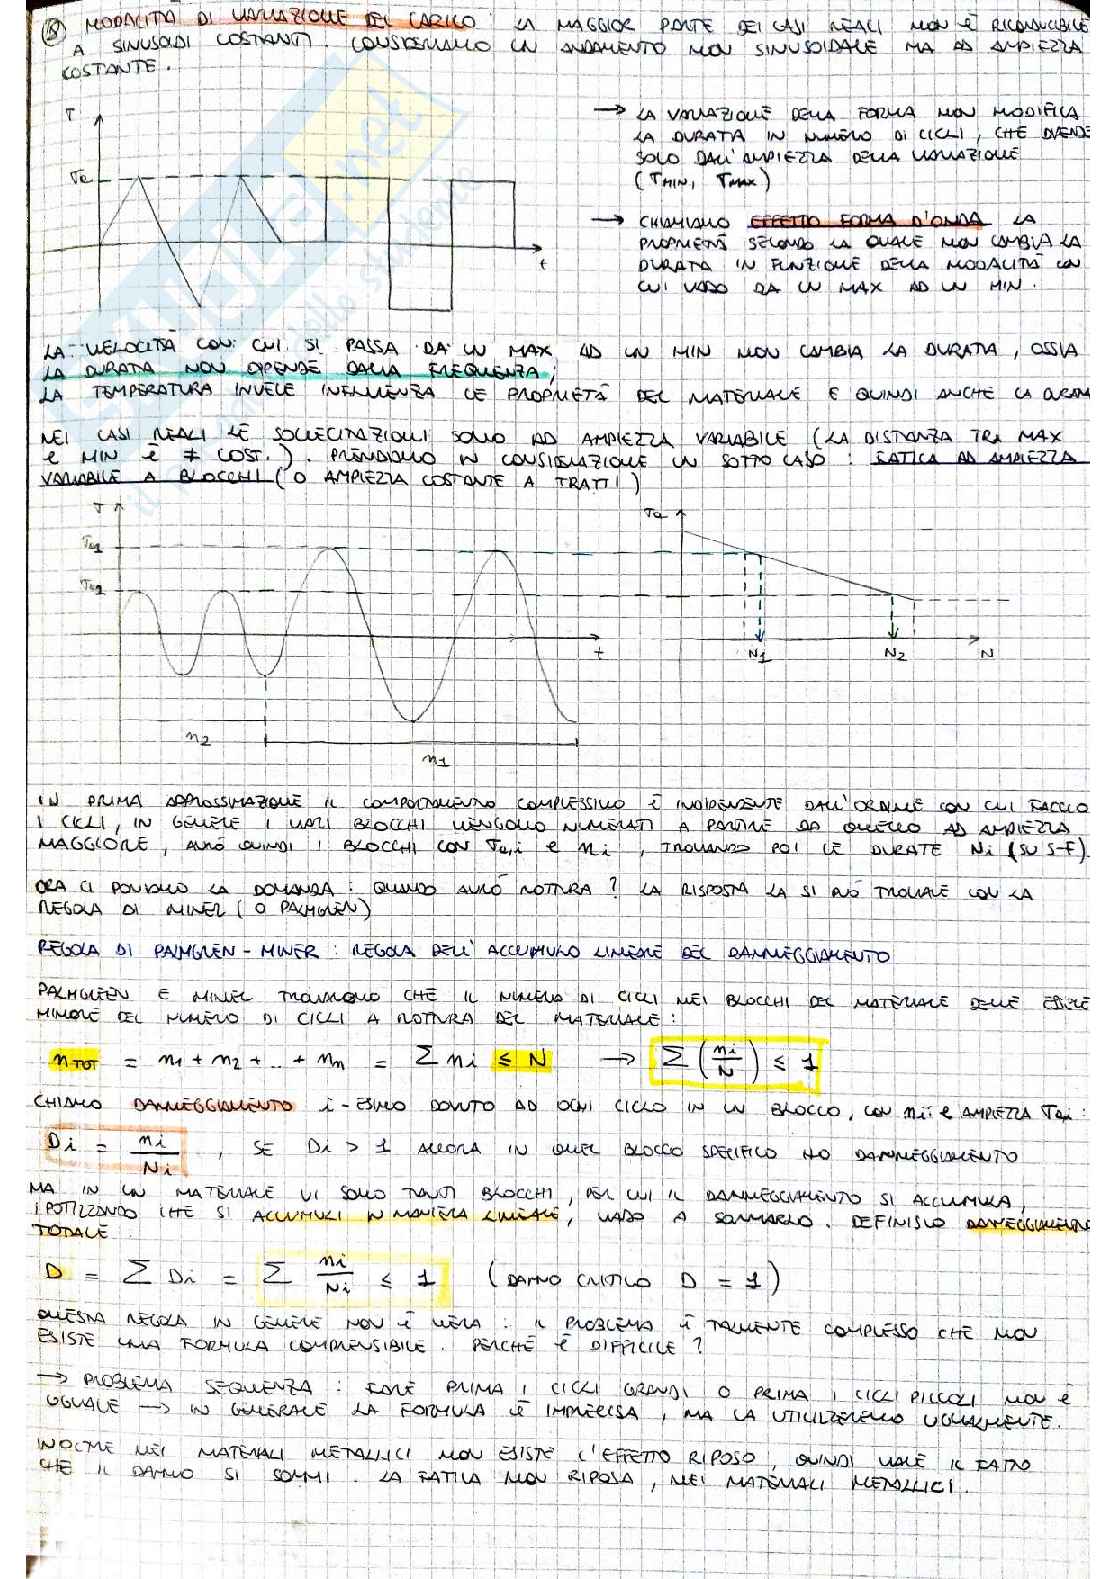 8) MODALITÀ DI VARIAZIONE DEL CARICO: LA MAGGIOR PARTE DEI CASI REALI NON È RICONDUCIBILE
A SINUSOIDI COSTANTI. CONSIDERIAMO UN ANDAMENTO NON SINUSOIDALE MA AD AMPIEZZA
COSTANTE.
σ
σa
t
→ LA VARIAZIONE DELLA FORMA NON MODIFICA
LA DURATA IN NUMERO DI CICLI, CHE DIPENDE
SOLO DALL'AMPIEZZA DELLA VARIAZIONE
(σMIN, σMAX)
→ CHIAMIAMO EFFETTO FORMA D'ONDA LA
PROPRIETÀ SECONDO LA QUALE NON CAMBIA LA
DURATA IN FUNZIONE DELLA MODALITÀ CON
CUI VADO DA UN MAX AD UN MIN.
LA VELOCITÀ CON CUI SI PASSA DA UN MAX AD UN MIN NON CAMBIA LA DURATA, OSSIA
LA DURATA NON DIPENDE DALLA FREQUENZA;
LA TEMPERATURA INVECE INFLUENZA LE PROPRIETÀ DEL MATERIALE E QUINDI ANCHE LA DURATA
NEI CASI REALI LE SOLLECITAZIONI SONO AD AMPIEZZA VARIABILE (LA DISTANZA TRA MAX
E MIN È ≠ COST.). PRENDIAMO IN CONSIDERAZIONE UN SOTTO CASO: FATICA AD AMPIEZZA
VARIABILE A BLOCCHI (O AMPIEZZA COSTANTE A TRATTI)
σ
σa1
σa2
t
n2
n1
σa
N1
N2
N
IN PRIMA APPROSSIMAZIONE IL COMPORTAMENTO COMPLESSIVO È INDIPENDENTE DALL'ORDINE CON CUI FACCIO
I CICLI, IN GENERE I VARI BLOCCHI VENGONO NUMERATI A PARTIRE DA QUELLO AD AMPIEZZA
MAGGIORE, AVRÒ QUINDI I BLOCCHI CON σa,i E ni, TROVANDO POI LE DURATE Ni (SU S-F).
ORA CI PONIAMO LA DOMANDA: QUANDO AVRÒ ROTTURA? LA RISPOSTA LA SI PUÒ TROVARE CON LA
REGOLA DI MINER (O PALMGREN)
REGOLA DI PALMGREN-MINER: REGOLA DELL'ACCUMULO LINEARE DEL DANNEGGIAMENTO
PALMGREEN E MINER TROVARONO CHE IL NUMERO DI CICLI NEI BLOCCHI DEL MATERIALE DEVE ESSERE
MINORE DEL NUMERO DI CICLI A ROTTURA DEL MATERIALE:
nTOT = n1 + n2 + .. + nn = Σ ni ≤ N → Σ (ni/N) ≤ 1
CHIAMO DANNEGGIAMENTO i-ESIMO DOVUTO AD OGNI CICLO IN UN BLOCCO, CON ni E AMPIEZZA σai:
Di = ni/Ni , SE Di > 1 ALLORA IN QUEL BLOCCO SPECIFICO HO DANNEGGIAMENTO
MA IN UN MATERIALE VI SONO TANTI BLOCCHI, PER CUI IL DANNEGGIAMENTO SI ACCUMULA,
IPOTIZZANDO CHE SI ACCUMULI IN MANIERA LINEARE, VADO A SOMMARLO. DEFINISCO DANNEGGIAMENTO
TOTALE
D = Σ Di = Σ ni/Ni ≤ 1 (DANNO CRITICO D = 1)
QUESTA REGOLA IN GENERE NON È VERA: IL PROBLEMA È TALMENTE COMPLESSO CHE NON
ESISTE UNA FORMULA COMPRENSIBILE. PERCHÉ È DIFFICILE?
→ PROBLEMA SEQUENZA: FARE PRIMA I CICLI GRANDI O PRIMA I CICLI PICCOLI NON È
UGUALE → IN GENERALE LA FORMULA È IMPRECISA, MA LA UTILIZZEREMO UGUALMENTE.
INOLTRE NEI MATERIALI METALLICI NON ESISTE L'EFFETTO RIPOSO, QUINDI VALE IL FATTO
CHE IL DANNO SI SOMMI. LA FATICA NON RIPOSA, NEI MATERIALI METALLICI.